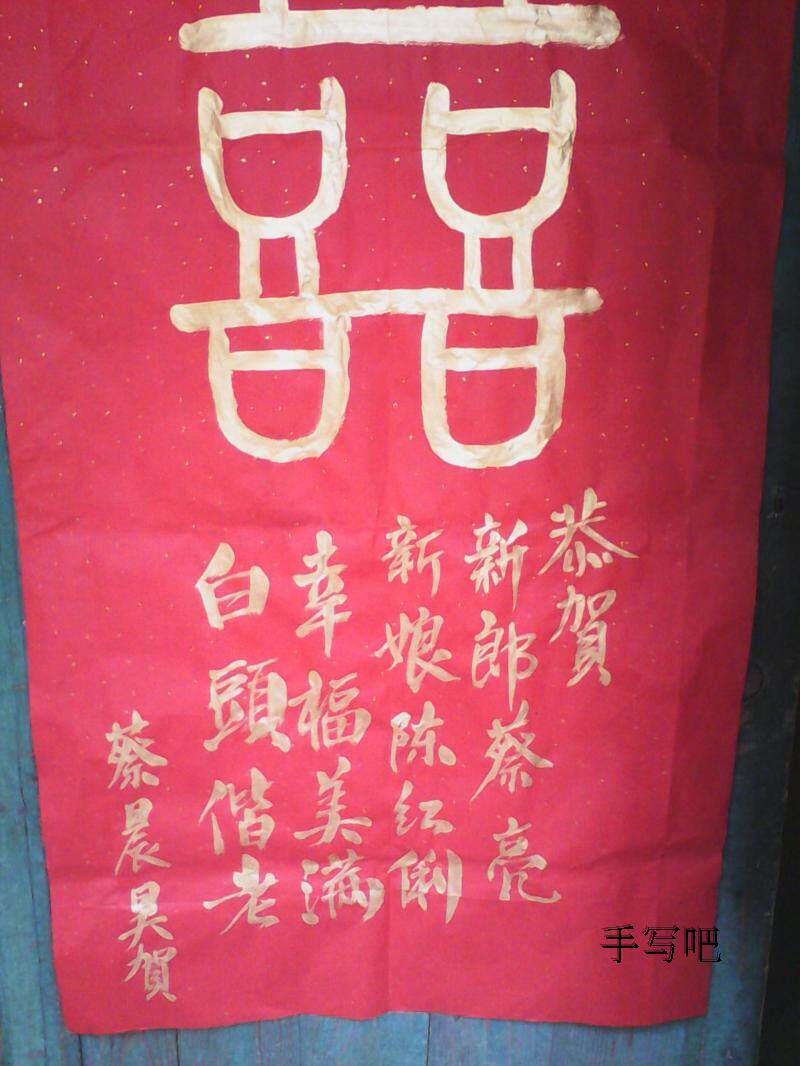 囍
恭賀
新郎蔡亮
新娘陈红俐
幸福美满
白頭偕老
蔡晨昊賀
手写吧